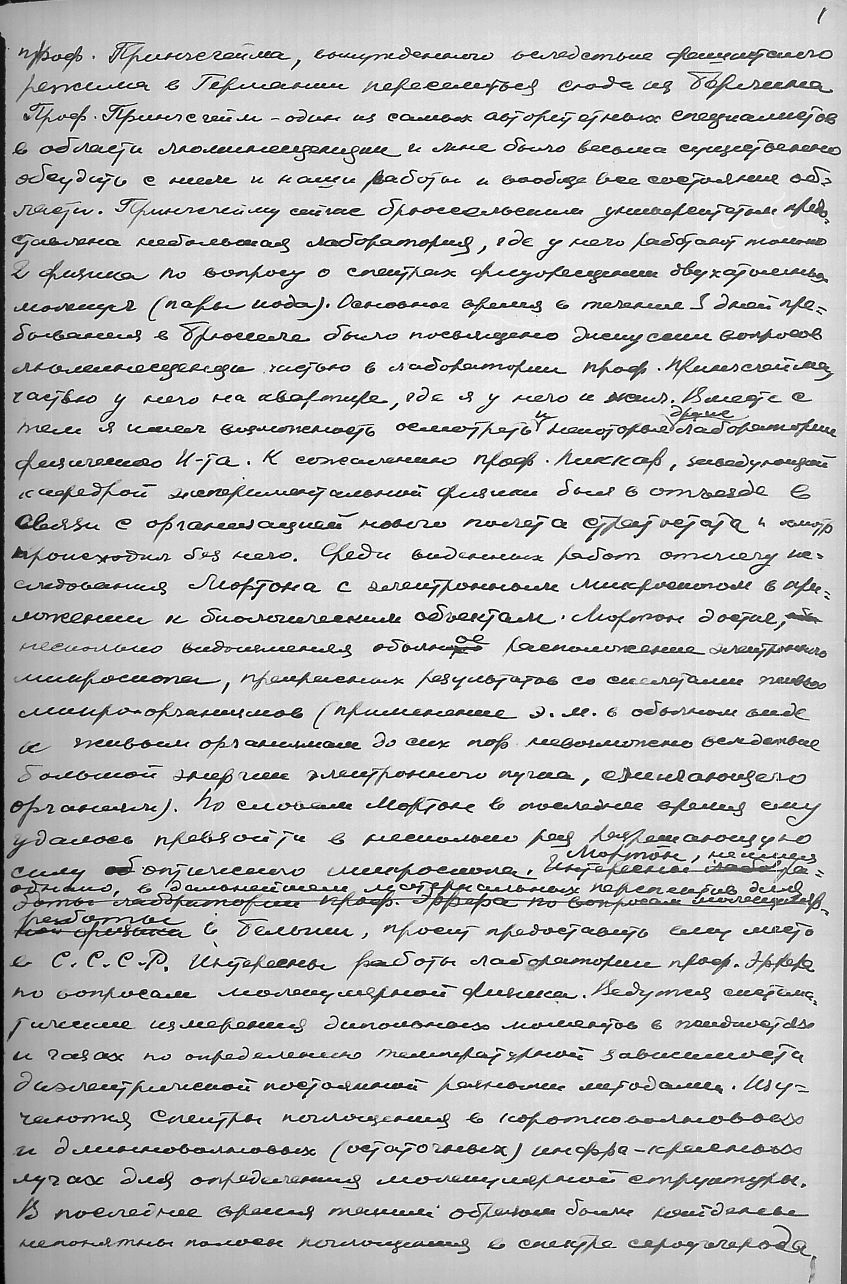 1
проф. Принсгейма, вынужденного вследствие фашистского
режима в Германии переселиться сюда из Берлина
Проф. Принсгейм - один из самых авторитетных специалистов
в области люминесценции и мне было весьма существенно
обсудить с ним и наши работы и вообще все состояние об-
ласти. Принсгейму сейчас брюссельским университетом предо-
ставлена небольшая лаборатория, где у него работают только
2 физика по вопросу о спектрах флуоресценции двухатомных
молекул (пары иода). Основное время в течение 5 дней пре-
бывания в Брюсселе было посвящено дискуссии вопросов
люминесценции частью в лаборатории проф. Принсгейма,
частью у него на квартире, где я у него и жил. Вместе с
тем я имел возможность осмотреть и некоторые другие лаборатории
физического И-та. К сожалению проф. Пиккар, заведующий
кафедрой экспериментальной физики был в отъезде в
связи с организацией нового полета стратостата и осмотр
происходил без него. Среди виденных работ отмечу ис-
следования Мортона с электронным микроскопом в при-
ложении к биологическим объектам. Мортон достиг,
несколько видоизменяя обычное расположение электронного
микроскопа, прекрасных результатов со скелетами
микроорганизмов (применение э.м. в обычном виде
к живым организмам до сих пор невозможно вследствие
большой энергии электронного пучка, сжигающего
организм). По словам Мортона в последнее время ему
удалось превзойти в несколько раз разрешающую
силу оптического микроскопа. Мортон, не имея
однако, в дальнейшем материальных перспектив для
работы в Бельгии, просит предоставить ему место
в С.С.С.Р. Интересны работы лаборатории проф. Эррера
по вопросам молекулярной физики. Ведутся система-
тические измерения дипольных моментов в жидкостях
и газах по определению температурной зависимости
диэлектрической постоянной разными методами. Изу-
чаются спектры поглощения в коротковолновых
и длинноволновых (остаточных) инфра-красных
лучах для определения молекулярной структуры.
В последнее время таким образом были найдены
непонятны полосы поглощения в спектре сероуглерода,